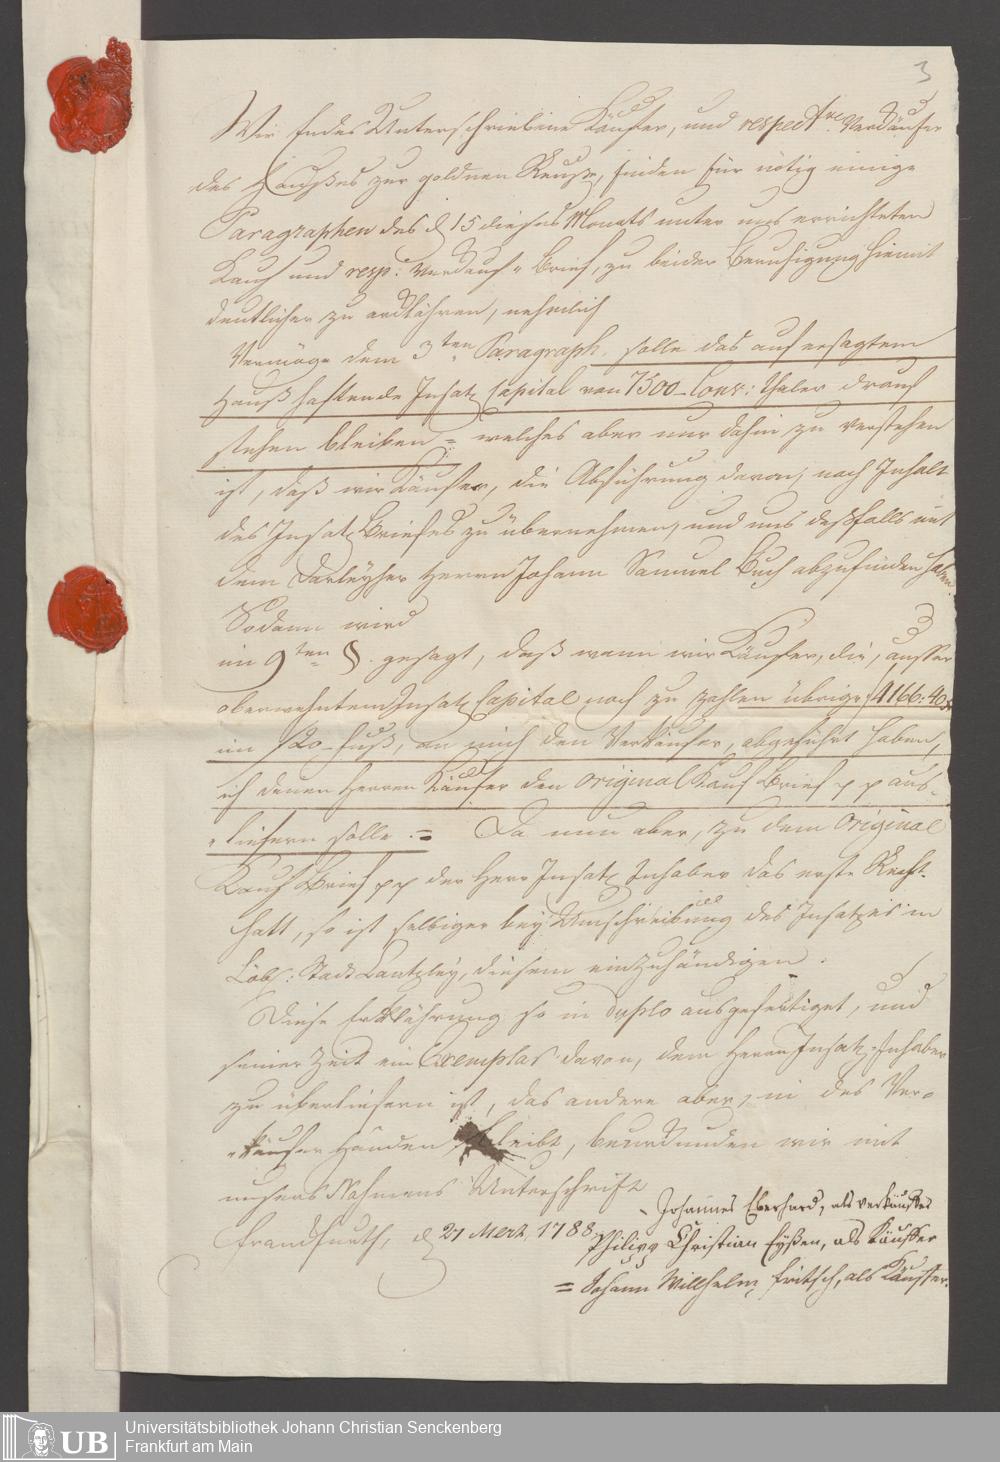 3
Wir Endes Unterschriebene Käufer, und respective Verkäufer
des Haußes zur goldnen Reuße, finden für nötig einige
Paragraphen des d 15 dieses Monats unter uns errichteten
Kauf und resp: Verkauf-Brief, zu beider Beruhigung hiemit
deutlicher zu erklähren, nehmlich
Vermöge dem 3ten Paragraph. solle das auf ersagtem
Hauß haftende Insatz Capital von 7500 Conv: Thaler drauf
stehen bleiben = welches aber nur dahin zu verstehen
ist, daß wir Käufer, die Abführung davon, nach Inhalt
des Insatz Briefes zu übernehmen, und uns deßfalls mit
dem Darleyher Herrn Johann Samuel Buch abzufinden haben
Sodann wird
im 9ten §. gesagt, daß wann wir Käufer, die, ausser
oberwehntem Insatz Capital noch zu zahlen übrige f4166:40x
im f20 Fuß, an mich den Verkäufer, abgeführt haben,
ich denen Herren Käufer den Original Kauf Brief pp aus-
liefern solle. = Da nun aber, zu dem Original
Kauf Brief pp der Herr Insatz Inhaber das erste Recht
hatt, so ist selbiger bey Umschreibung des Insatzes in
Löbl: Stadt Cantzley, diesem einzuhändigen.
Diese Erklährung so in duplo ausgefertiget, und
seiner Zeit ein Exemplar davon, dem Herrn Insatz-Inhaber
zu überliefern ist, das andere aber, in des Ver-
käufer Händen bleibt, beurkunden wir mit
unsers Nahmens Unterschrift
Franckfurth, d 27 Merz 1788.
Johannes Eberhard, als verkäuffer
Philipp Christian Eyßen, als Käuffer
= Johann Willhelm Fritsch, als Käuffer.
UB
Universitätsbibliothek Johann Christian Senckenberg
Frankfurt am Main